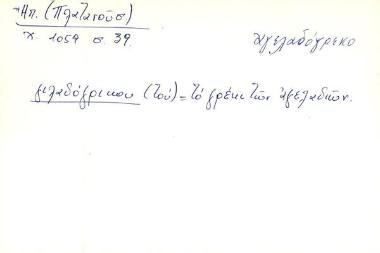 Ἠπ. (Πλατανοῦσ)
χ. 1059 σ. 39.
ἀγελαδόγρεκο
γιλαδόγρικου (τοὺ) = τό γρέκι τῶν ἀγελαδιῶν.